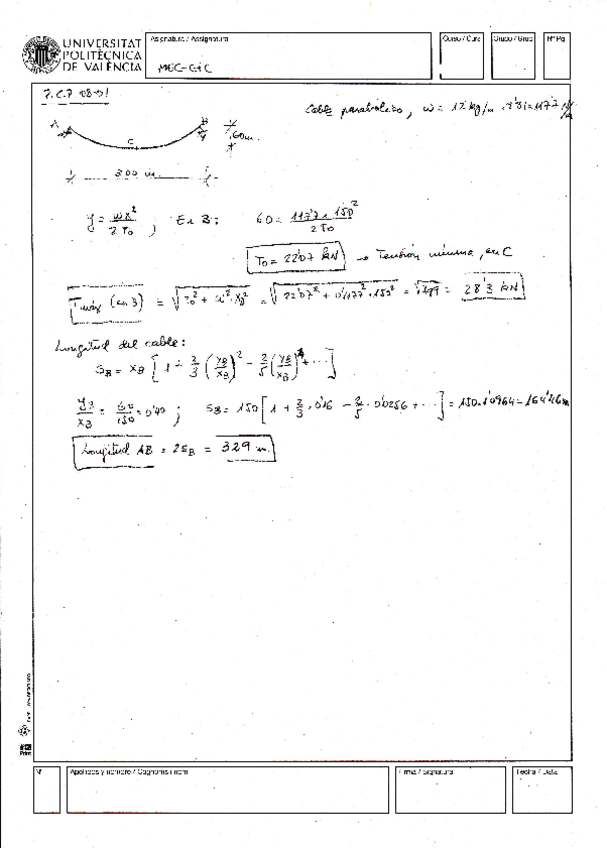 UNIVERSITAT
POLITÈCNICA
DE VALÈNCIA
Asignatura / Assignatura
MEC-GIC
Curso / Curs
Grupo / Grup
Nº Pg
Cable parabólico, w = 12 kg/m · 9'81 = 117'7 N/m
A
B
C
60 m.
300 m.
y = wx² / 2T₀ ; En B: 60 = 117'7 × 150² / 2T₀
T₀ = 22'07 kN → Tensión mínima, en C
Tmáx (en B) = √(T₀² + w²·x_B²) = √(22'07² + 0'1177²·150²) = = 28'3 kN
Longitud del cable:
S_B = x_B [ 1 + 2/3 (y_B/x_B)² − 2/5 (y_B/x_B)⁴ + ··· ]
y_B/x_B = 60/150 = 0'40 ; S_B = 150 [ 1 + 2/3 · 0'16 − 2/5 · 0'0256 + ··· ] = 150 · 1'0964 = 164'46 m
Longitud AB = 2S_B = 329 m.
Nº
Apellidos y nombre / Cognoms i nom
Firma / Signatura
Fecha / Data